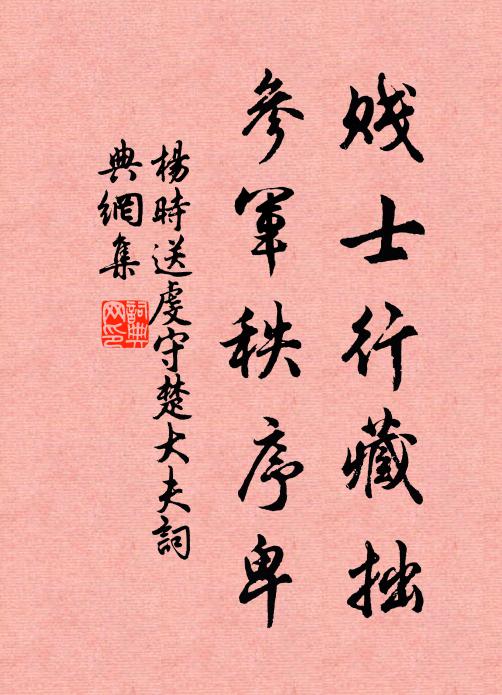 賤士行藏拙
參軍秩序卑
楊時送虔守楚大夫詞
典網集
詞典
网印